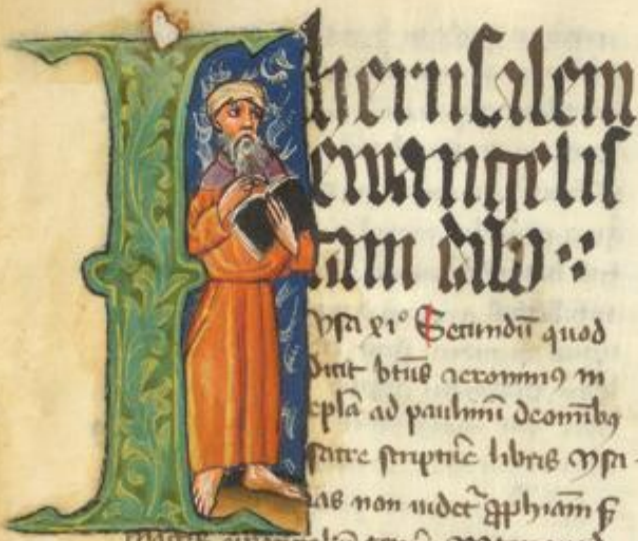 Iherusalem
ewangelis
tam dabo
ysa xli° Secundū quod
dicit btūs ieronimꝯ in
epl̄a ad paulinū de omībꝯ
sacre sciptūe libris ysa
ias non uidet᷑ ꝓphiam